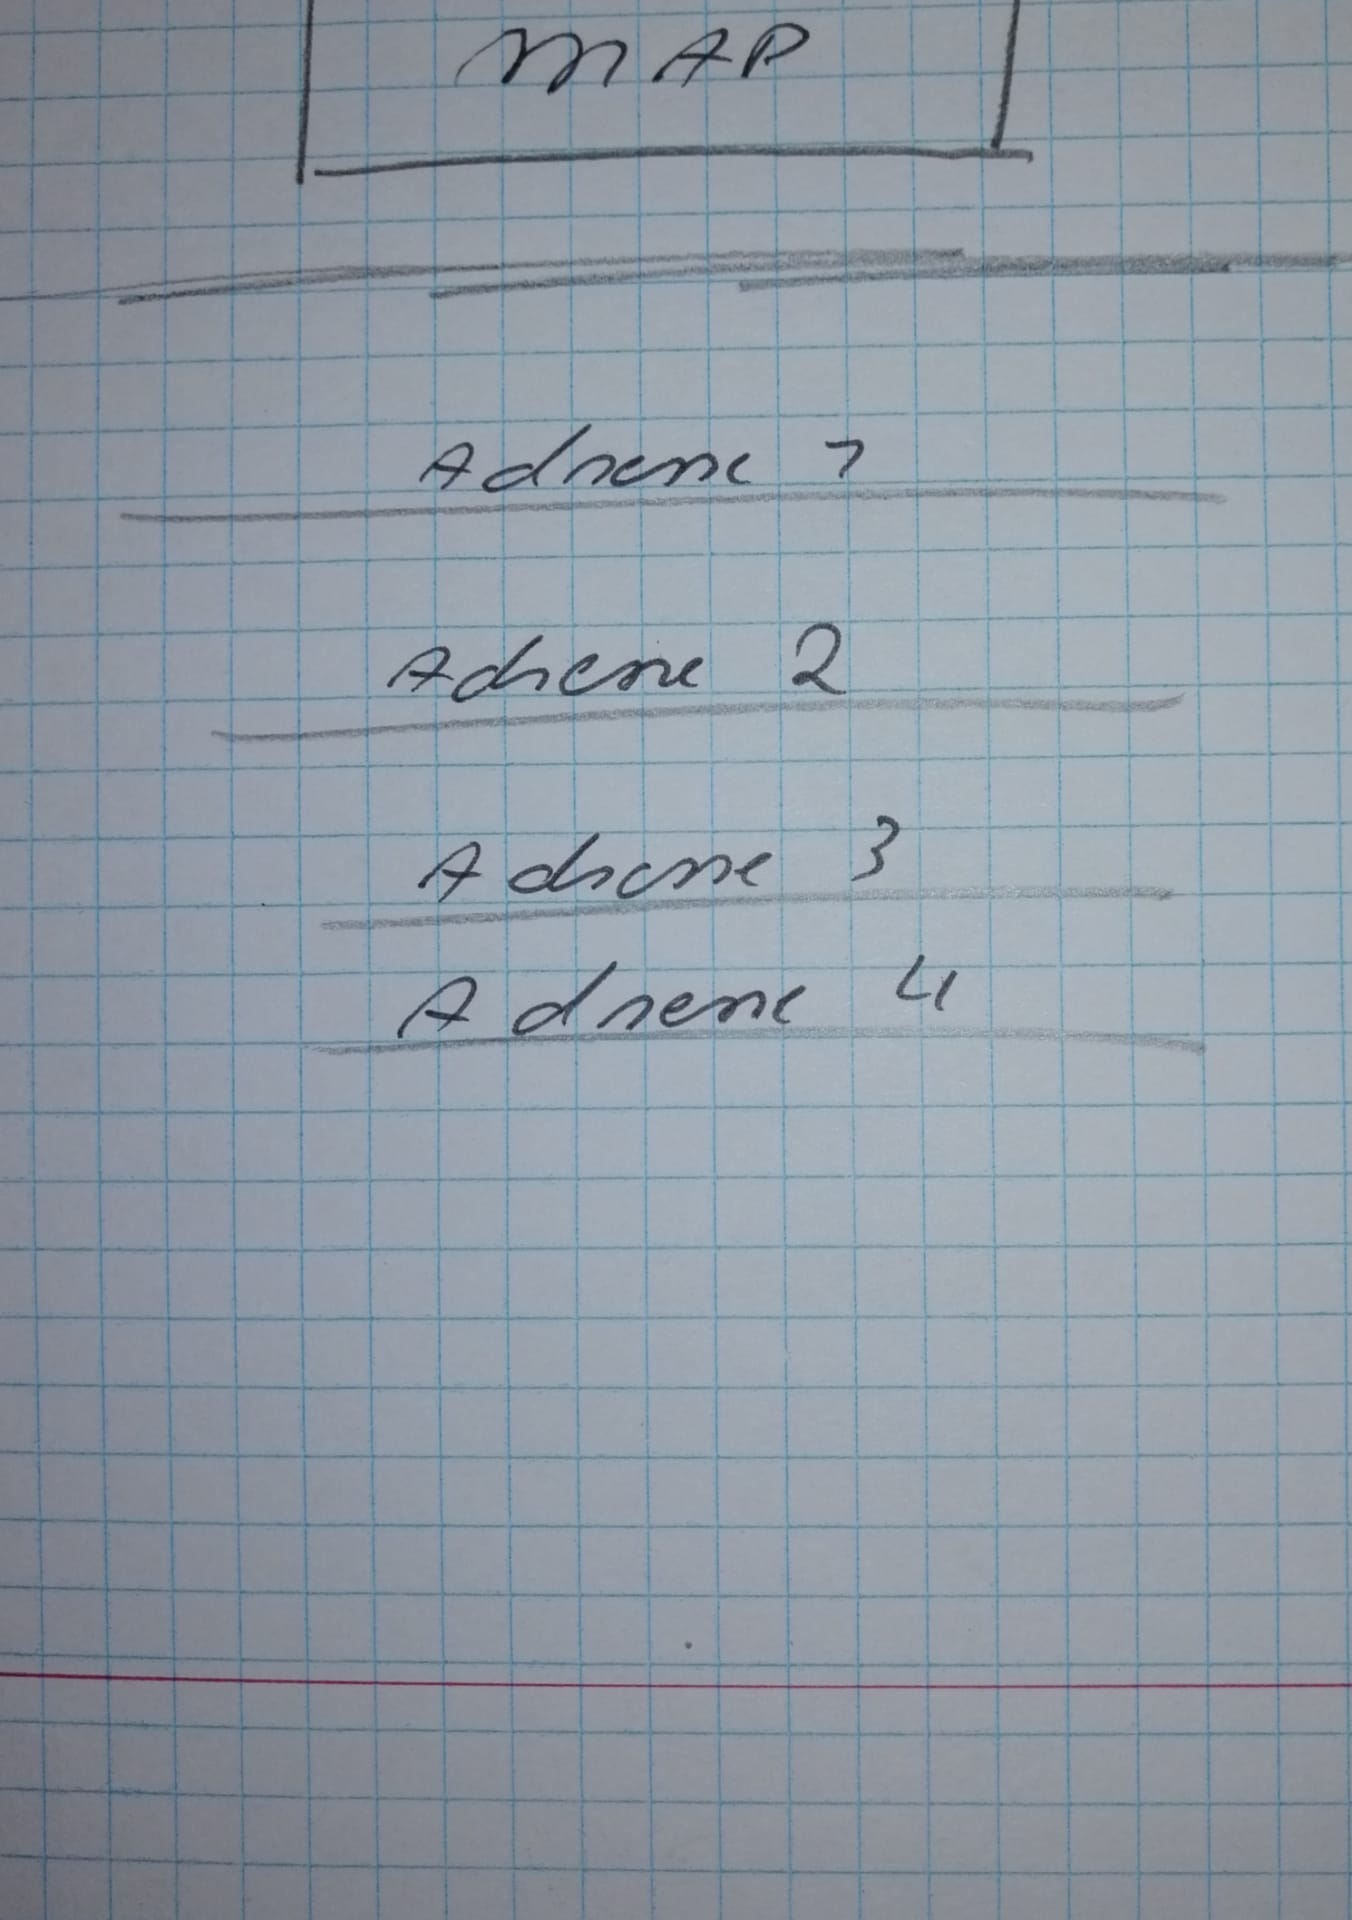 MAP
Adresse 1
Adresse 2
Adresse 3
Adresse 4